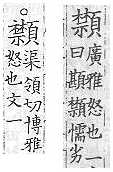 廣雅怒也一
曰懦劣
○
渠領切博雅
怒也文一